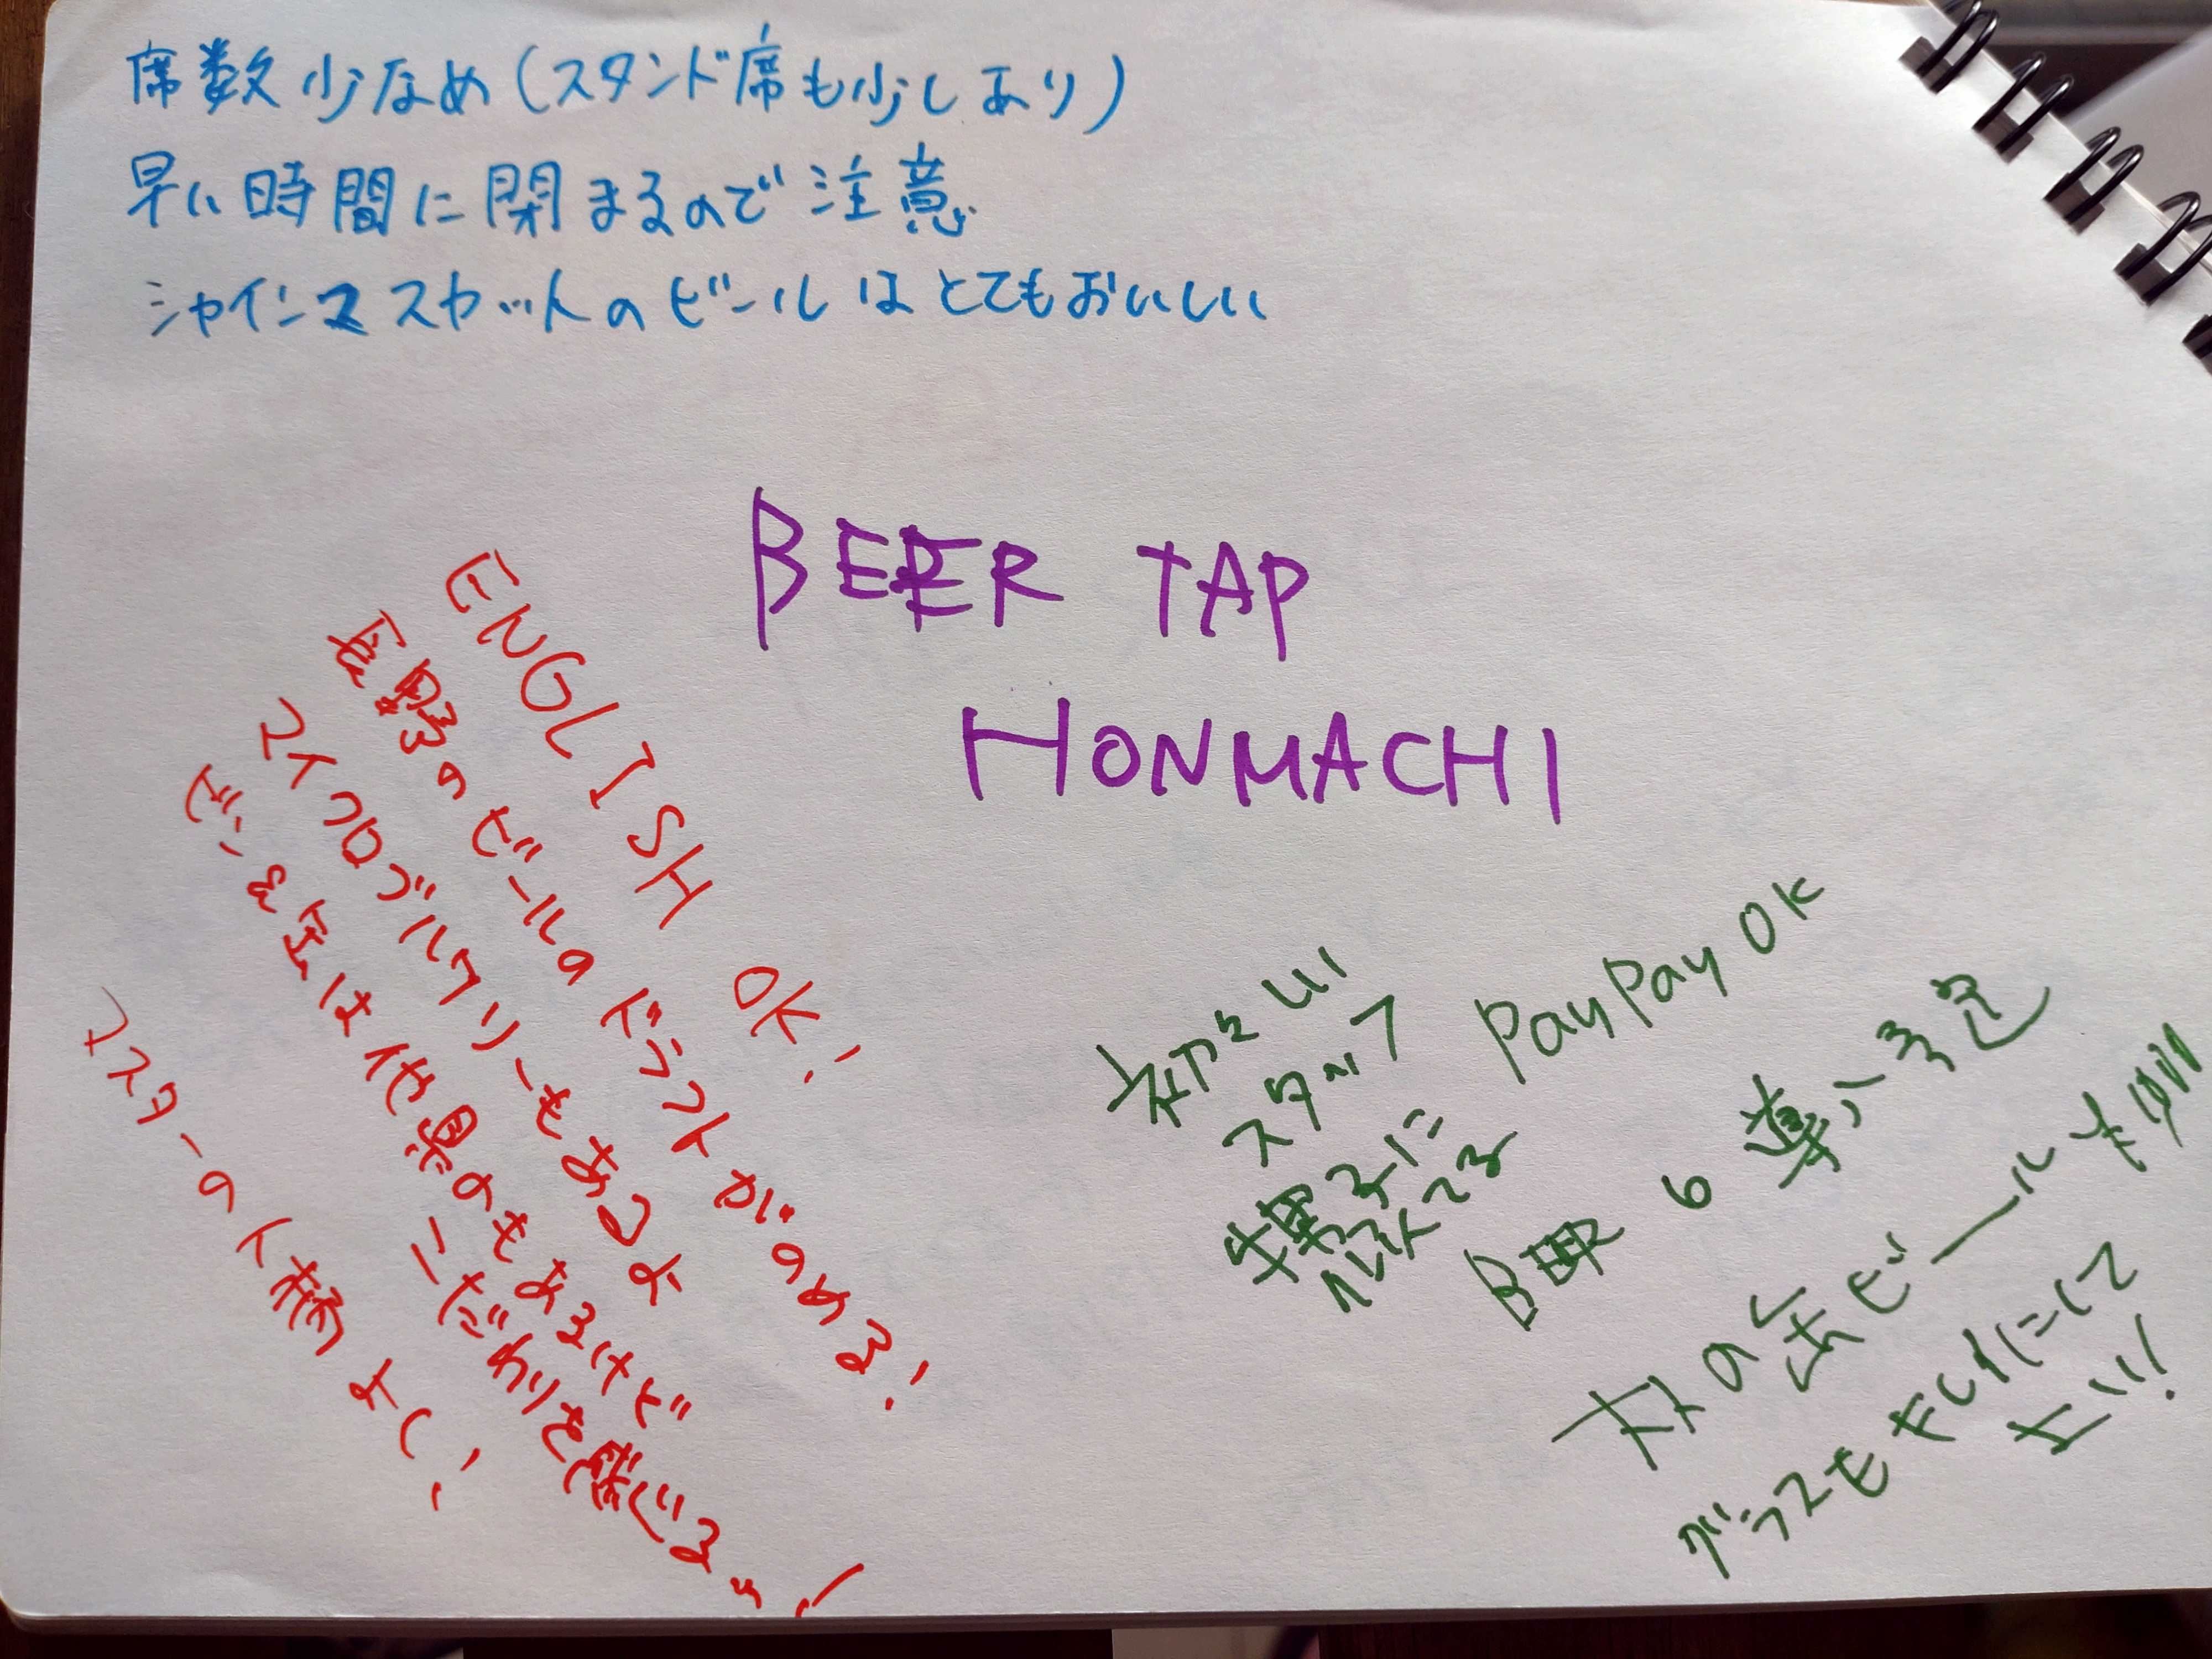 席数少なめ(スタンド席も少しあり)
早い時間に閉まるので注意
シャインマスカットのビールはとてもおいしい
BEER TAP
HONMACHI
ENGLISH OK!
長野のビールのドラフトがのめる!
マイクロブルワリーもあるよ
ビン&缶は他県のもあるけど
こだわりを感じるっ!
マスターの人柄よし!
スタッフ
PayPay OK
BEER 6 導入予定
の缶ビール
グラスもキレイにして